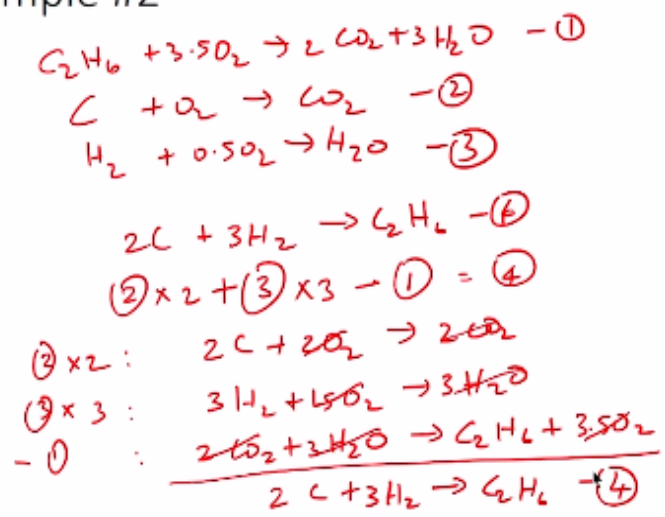 mple #2
C₂H₆ + 3.5O₂ → 2 CO₂ + 3H₂O - ①
C + O₂ → CO₂ - ②
H₂ + 0.5O₂ → H₂O - ③
2C + 3H₂ → C₂H₆ - ④
② × 2 + ③ × 3 - ① = ④
② × 2 : 2C + 2O₂ → 2CO₂
③ × 3 : 3H₂ + 1.5O₂ → 3H₂O
- ① : 2CO₂ + 3H₂O → C₂H₆ + 3.5O₂
2C + 3H₂ → C₂H₆ - ④